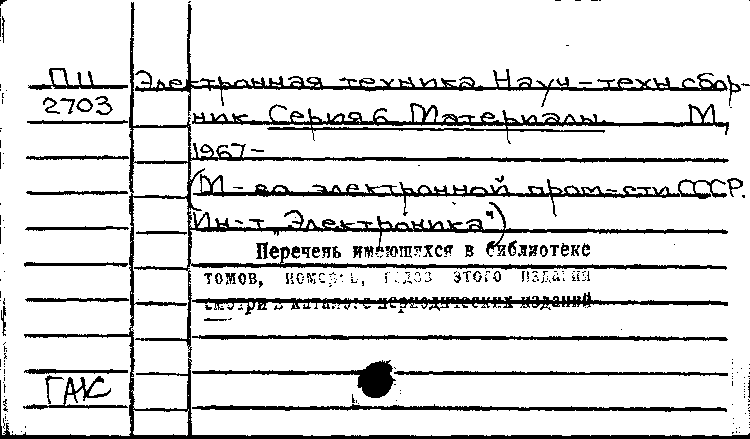 ПII Электронная техника. Науч-техн сбор-
2703 ник. Серия 6. Материалы. М.,
1967-
(М-во электронной пром-сти СССР.
Ин-т "Электроника")
Перечень имеющихся в библиотеке
томов, номеров, годов этого издания
смотри в каталоге периодических изданий
ГАК